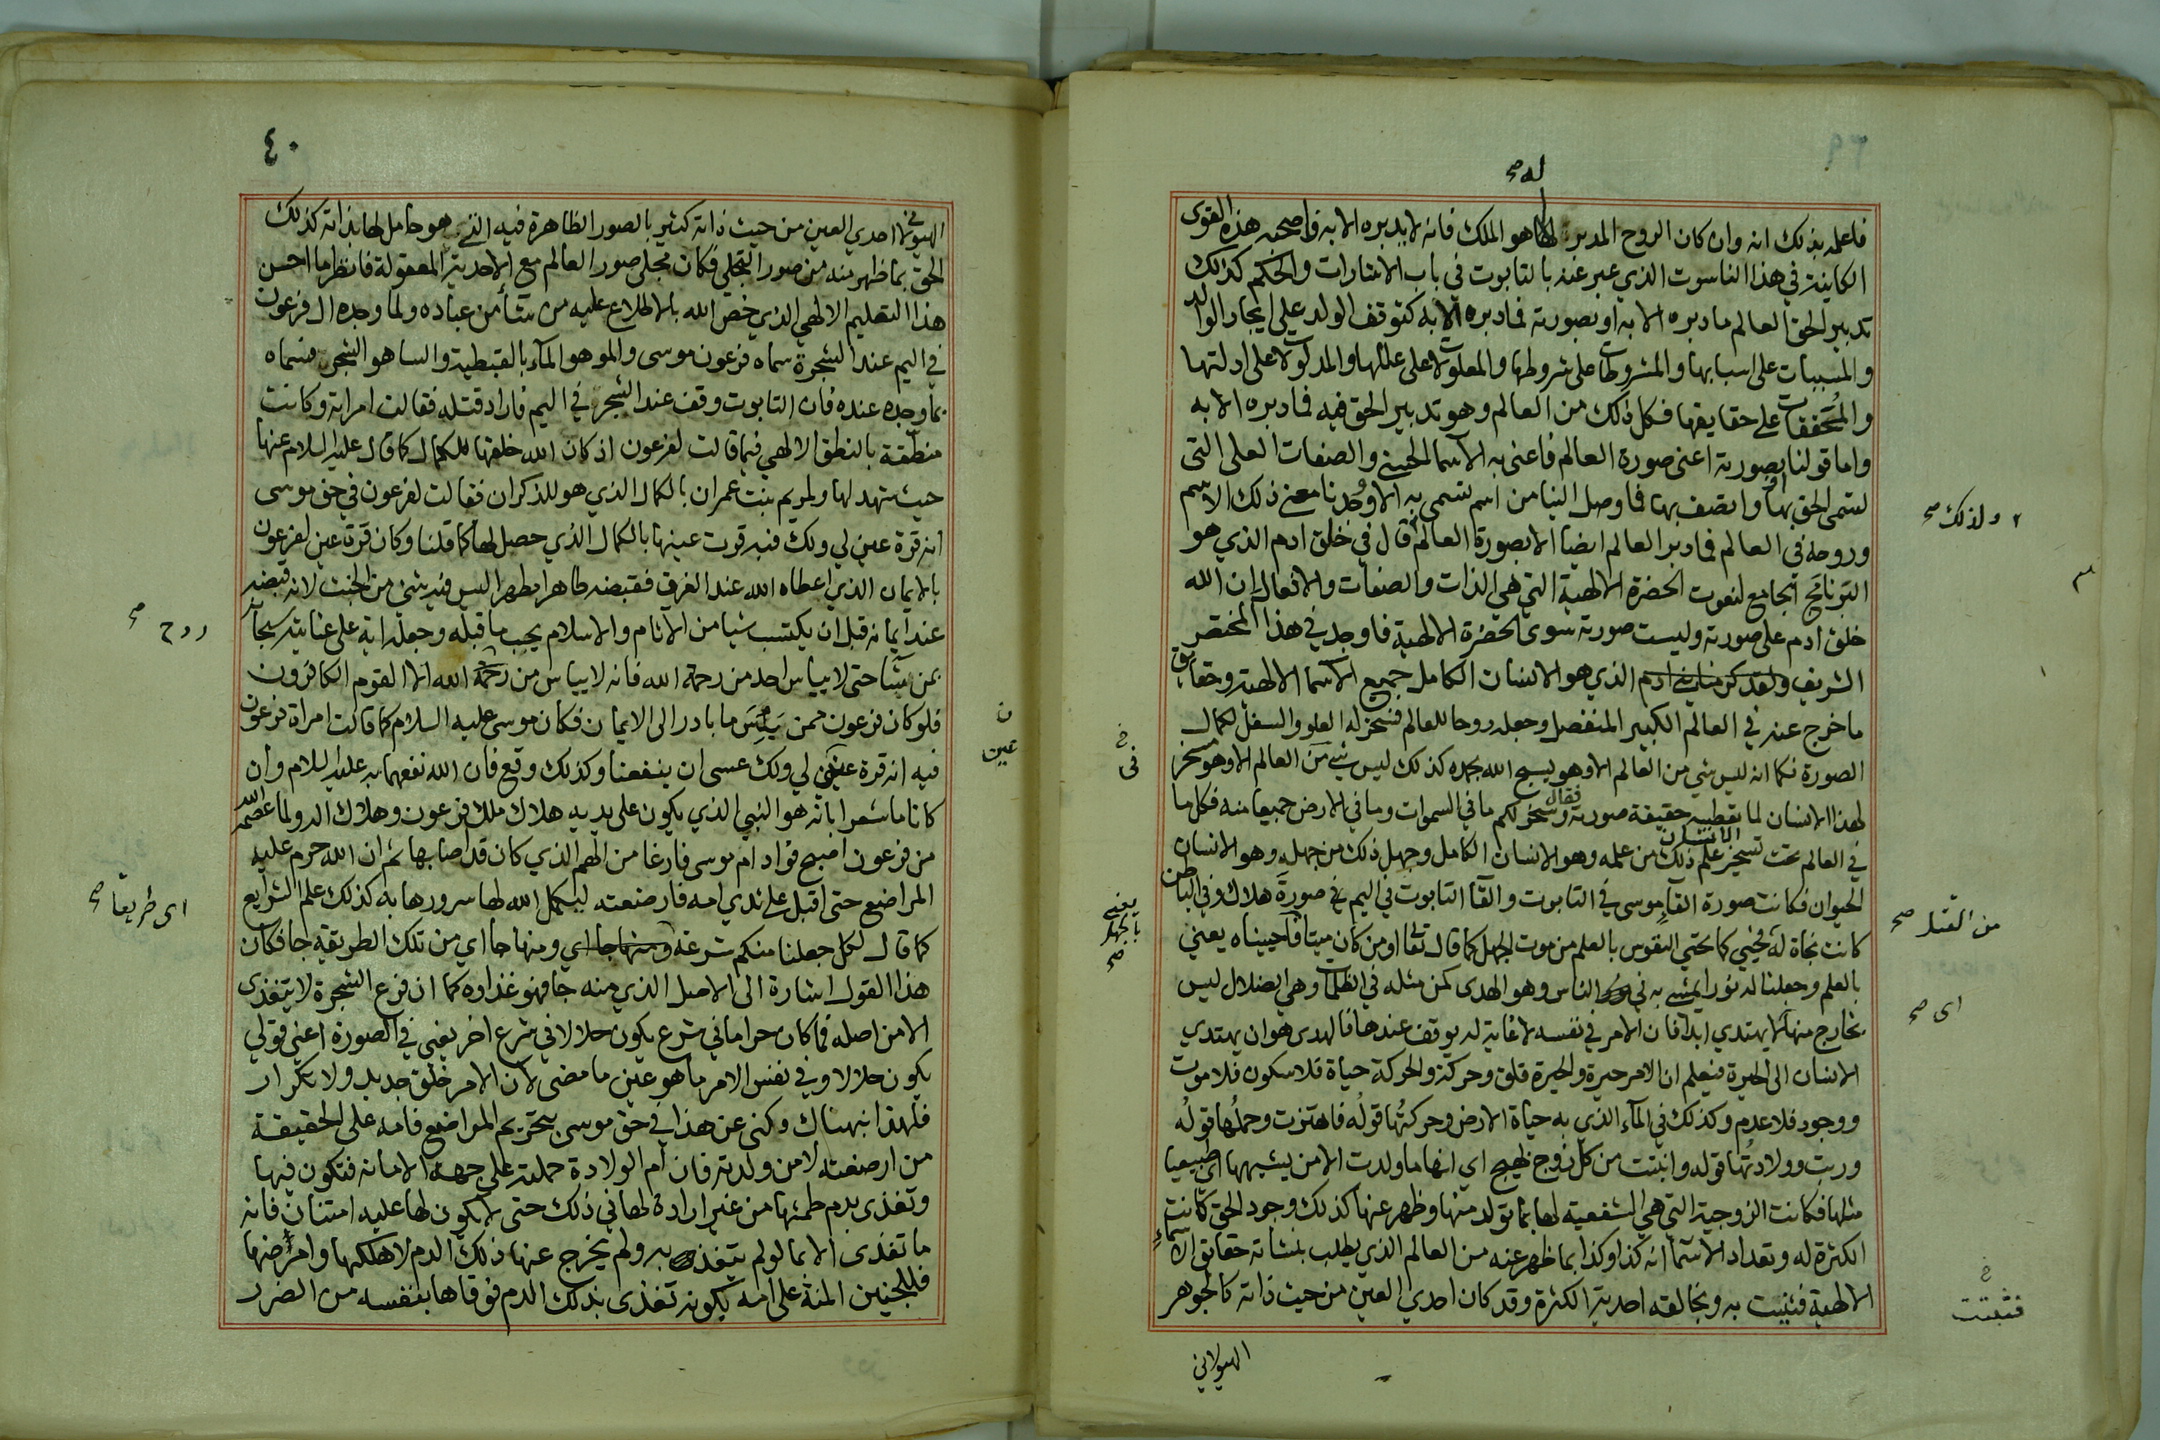 له صح
فاعلمه بذلك انه وان كان الروح المدبر لها هو الملك فانه لا يدبره الا به فاصحبه هذه القوى
الكاينة في هذا الناسوت الذي عبر عنه بالتابوت في باب الاشارات والحكم كذلك
تدبير الحق العالم ما دبره الا به او بصورته فما دبره الا به كتوقف الولد على ايجاد الوالد
والمسببات على اسبابها والمشروطات على شروطها والمعلولات على عللها والمدلولات على ادلتها
والمحققات على حقايقها فكل ذلك من العالم وهو تدبير الحق فيه فما دبره الا به
واما قولنا بصورته اعنى صورة العالم فاعنى به الاسما الحسنى والصفات العلى التى
تسمى الحق بها واتصف بها فما وصل الينا من اسم تسمى به الا وجدنا معنى ذلك الاسم
وروحه فى العالم فما دبر العالم ايضا الا بصورة العالم قال في خلق ادم الذي هو
البرنامج الجامع لنعوت الحضرة الالهية التي هي الذات والصفات والافعال ان الله
خلق ادم على صورته وليست صورته سوى الحضرة الالهية فاوجد في هذا المختصر
الشريف الذي هو الانسان الكامل جميع الاسما الالهية وحقايق
ما خرج عنه في العالم الكبير المنفصل وجعله روحا للعالم فسخر له العلو والسفل لكمال
الصورة فكما انه ليس شي من العالم الا وهو يسبح الله بحمده كذلك ليس شي من العالم الا وهو مسخر
لهذا الانسان لما تعطيه حقيقة صورته فقال وسخر لكم ما في السموات وما في الارض جميعا منه فكل ما
في العالم تحت تسخير الانسان علم ذلك من علمه وهو الانسان الكامل وجهل ذلك من جهله وهو الانسان
الحيوان فكانت صورة القآ موسى في التابوت والقآ التابوت في اليم في صورة هلاك وفي الباطن
كانت نجاة له فحيي كما تحيى النفوس بالعلم من موت الجهل كما قال تعالى اومن كان ميتا فاحييناه يعني
بالعلم وجعلنا له نورا يمشي به في الناس وهو الهدى كمن مثله في الظلمات وهي الضلال ليس
بخارج منها لا يهتدي ابدا فان الامر في نفسه لا غاية له يوقف عندها فالهدى هو ان يهتدي
الانسان الى الحيرة فيعلم ان الامر حيرة والحيرة قلق وحركة والحركة حياة فلا سكون فلا موت
ووجود فلا عدم وكذلك في المآء الذي به حياة الارض وحركتُها قولُه فاهتزت وحملُها قولُه
وربت وولادتُها قوله وانبتت من كل زوج بهيج اي انها ما ولدت الا من يشبهها اي طبيعيا
مثلها فكانت الزوجية التي هي الشفعية لها بما تولد منها وظهر عنها كذلك وجود الحق كانت
الكثرة له وتعداد الاسما انه كذا وكذا بما ظهر عنه من العالم الذي يطلب بنشاته حقايق الاسماء
الالهية فثبتت به وبخالقه احدية الكثرة وقد كان احدي العين من حيث ذاته كالجوهر
الهيولاني
ولذلك صح
خ
في
من القتل صح
يعنى
بالجهل
صح
اى صح
خ
فثبتت
٤٠
الهيولاني احدي العين من حيث ذاته كثير بالصور الظاهرة فيه التي هو حامل لها بذاته كذلك
الحق بما ظهر منه من صور التجلي فكان مجلى صور العالم مع الاحدية المعقولة فانظر ما احسن
هذا التعليم الالهي الذي خص الله بالاطلاع عليه من شآ من عباده ولما وجده ال فرعون
في اليم عند الشجرة سماه فرعون موسى والمو هو المآء بالقبطية والسا هو الشجر فسماه
بما وجده عنده فان التابوت وقف عند الشجر في اليم فاراد قتله فقالت امراته وكانت
منطقة بالنطق الالهي فيما قالت لفرعون اذ كان الله خلقها للكمال كما قال عليه السلام عنها
حيث شهد لها ولمريم بنت عمران بالكمال الذي هو للذكران فقالت لفرعون في حق موسى
انه قرة عين لي ولك فبه قرت عينها بالكمال الذي حصل لها كما قلنا وكان قرة عين لفرعون
بالايمان الذي اعطاه الله عند الغرق فقبضه طاهرا مطهرا ليس فيه شئ من الخبث لانه قبضه
عند ايمانه قبل ان يكتسب شيا من الآثام والاسلام يجب ما قبله وجعله اية على عنايته سبحانه
بمن شآ حتى لا يياس احد من رحمة الله فانه لا يياس من رحمة الله الا القوم الكافرون
فلو كان فرعون ممن يياس ما بادر الى الايمان فكان موسى عليه السلام كما قالت امراة فرعون
فيه انه قرة عين لي ولك عسى ان ينفعنا وكذلك وقع فان الله نفعهما به عليه السلام وان
كانا ما شعرا بانه هو النبي الذي يكون على يديه هلاك ملك فرعون وهلاك اله ولما عصمه الله
من فرعون اصبح فؤاد ام موسى فارغا من الهم الذي كان قد اصابها ثم ان الله حرم عليه
المراضع حتى اقبل على ثدي امه فارضعته ليكمل الله لها سرورها به كذلك علم الشرايع
كما قال لكل جعلنا منكم شرعة ومنهاجا اي من تلك الطريقة جا فكان
هذا القول اشارة الى الاصل الذي منه جا فهو غذاوه كما ان فرع الشجرة لا يتغذى
الا من اصله فما كان حراما في شرع يكون حلالا في شرع اخر يعني في الصورة اعني قولي
يكون حلالا وفي نفس الامر ما هو عين ما مضى لان الامر خلق جديد ولا تكرار
فلهذا نبهناك وكنى عن هذا في حق موسى بتحريم المراضع فامه على الحقيقة
من ارضعته لا من ولدته فان ام الولادة حملته على جهة الامانة فتكون فيها
وتغذى بدم طمثها من غير ارادة لها في ذلك حتى لا يكون لها عليه امتنان فانه
ما تغذى الا بما لو لم يتغذ به ولم يخرج عنها ذلك الدم لاهلكها وامرضها
فللجنين المنة على امه بكونه تغذى بذلك الدم فوقاها بنفسه من الضرر
روح صح
ن
عين
اى طريقا صح